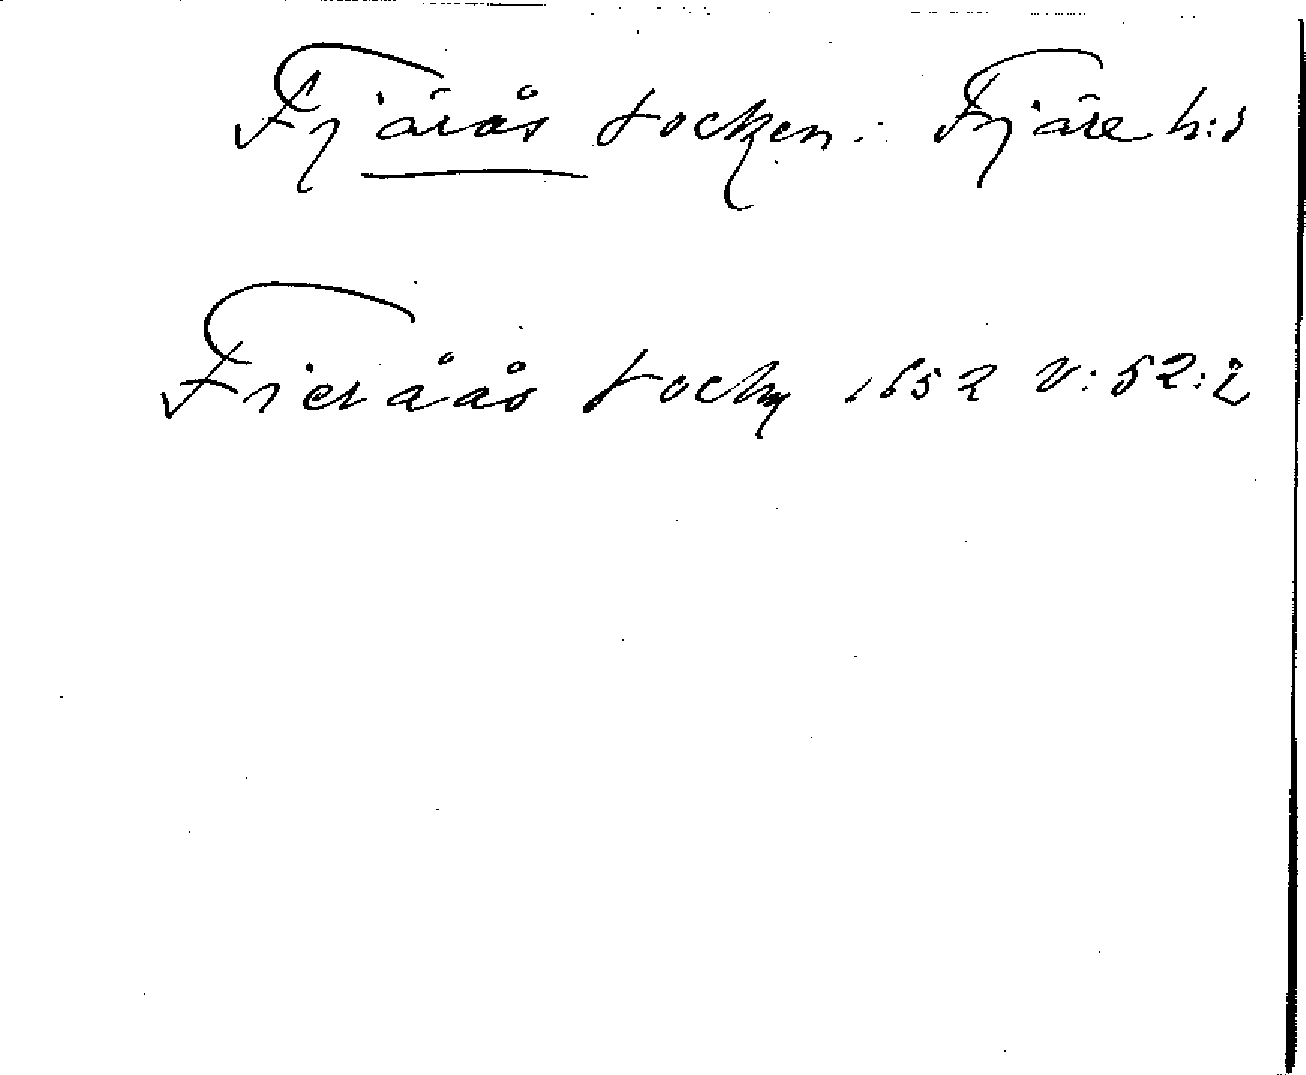 Fjärås socken. Fjäre h:d
Fieråås Sockn 1652 V:52:2